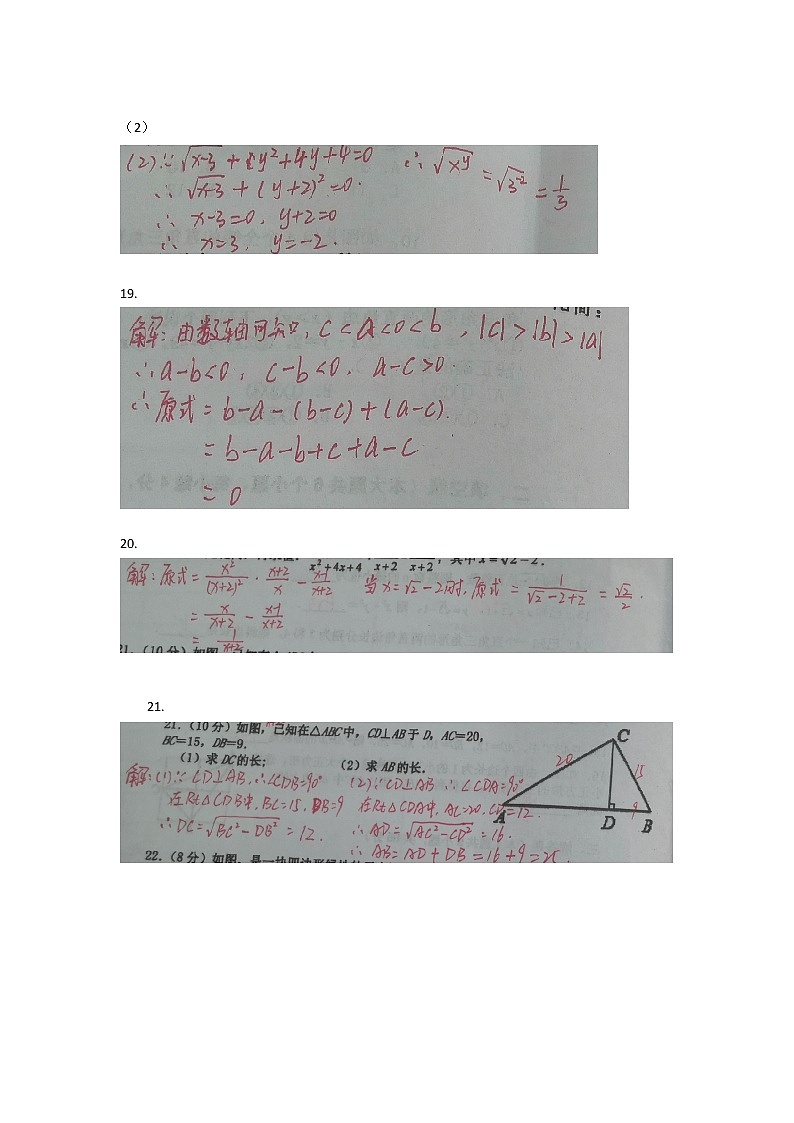 （2）
(2)∵ √(x-3) + y²+4y+4=0 ∴ √(x^y) = √(3^-2) = 1/3
∴ √(x-3) + (y+2)²=0.
∴ x-3=0, y+2=0
∴ x=3, y=-2.
19.
解：由数轴可知，c<a<0<b，|c|>|b|>|a|
∴a-b<0，c-b<0，a-c>0
∴原式=b-a-(b-c)+(a-c)
=b-a-b+c+a-c
=0
20.
x²+4x+4 x+2 x+2 ，其中x=√2-2.
解：原式= x²/(x+2)² · (x+2)/x - (x-1)/(x+2) 当x=√2-2时，原式= 1/(√2-2+2) = √2/2.
= x/(x+2) - (x-1)/(x+2)
= 1/(x+2)
21.(10分)如图
21.
21.(10分)如图，已知在△ABC中，CD⊥AB于D，AC=20，
BC=15，DB=9.
(1)求DC的长； (2)求AB的长.
解：(1)∵CD⊥AB，∴∠CDB=90°
在Rt△CDB中，BC=15，DB=9
∴DC=√(BC²-DB²)=12.
(2)∵CD⊥AB ∴∠CDA=90°
在Rt△CDA中，AC=20，CD=12.
∴AD=√(AC²-CD²)=16.
∴AB=AD+DB=16+9=25.
C
20
15
9
A
D
B
22.(8分)如图，是一块四边形绿地的